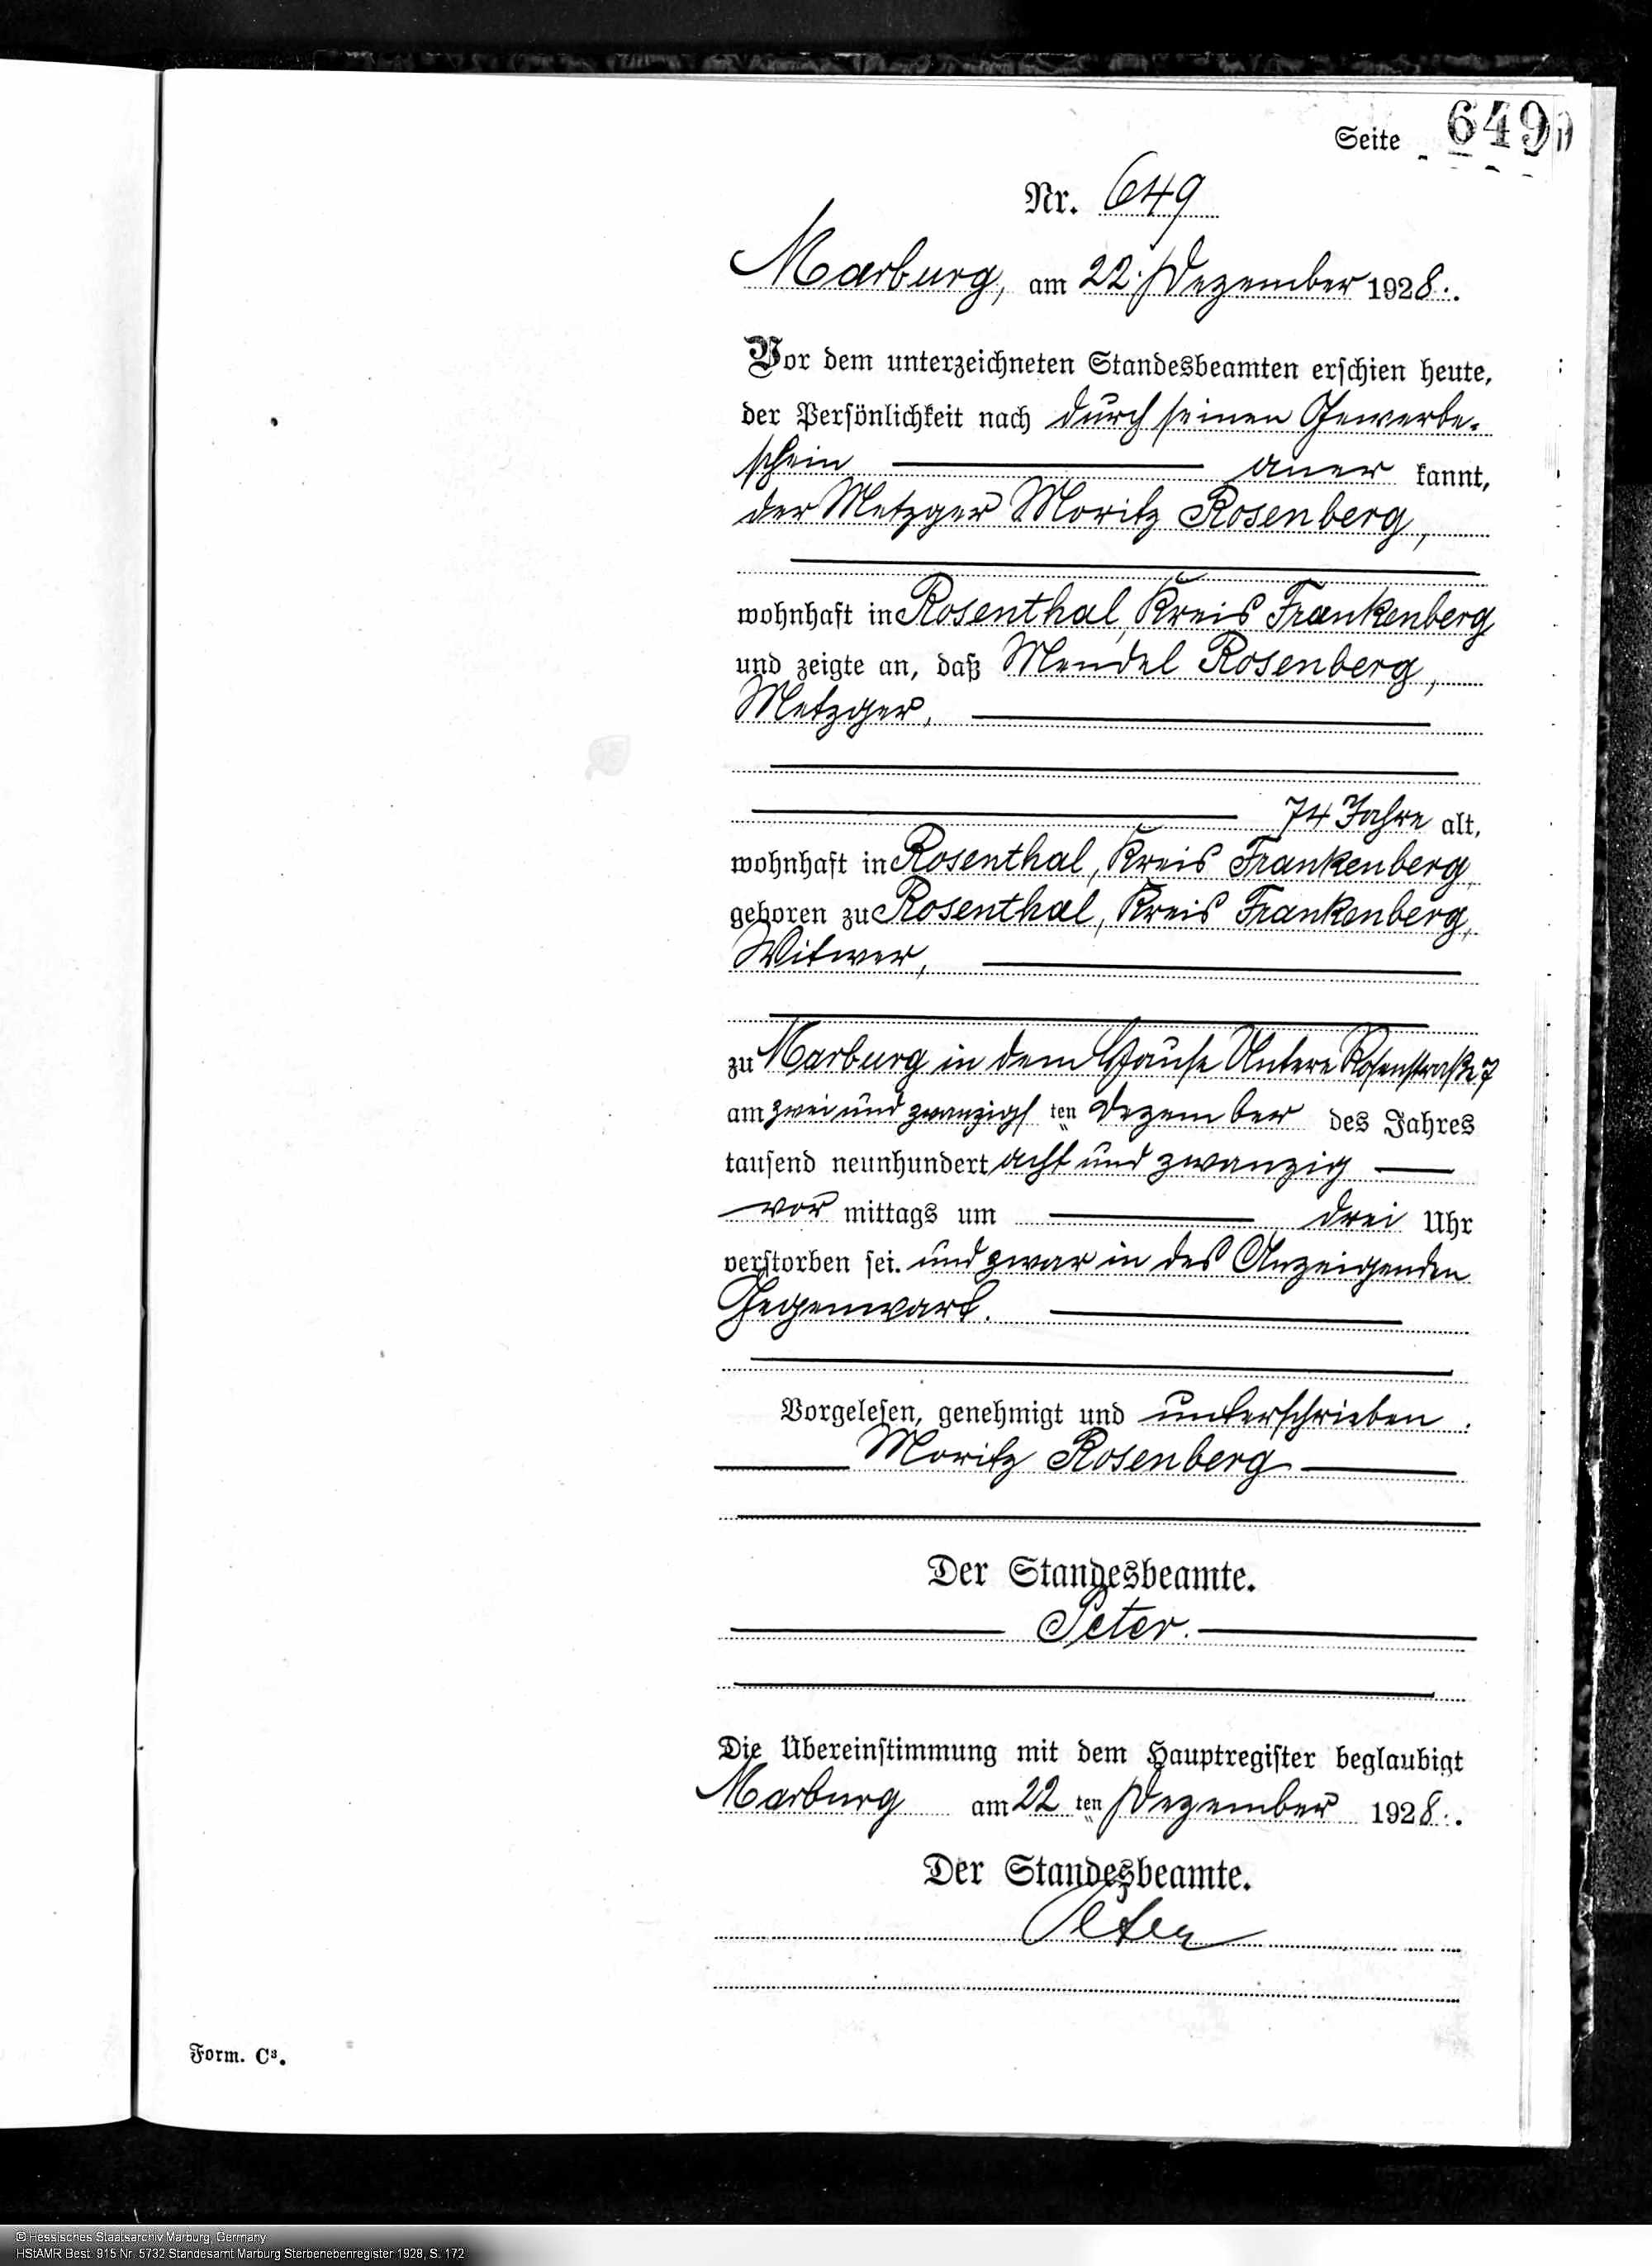 Seite 649
Nr. 649
Marburg, am 22. Dezember 1928.
Vor dem unterzeichneten Standesbeamten erschien heute,
der Persönlichkeit nach durch seinen Gewerbe-
schein aner kannt,
der Metzger Moritz Rosenberg,
wohnhaft in Rosenthal, Kreis Frankenberg
und zeigte an, daß Mendel Rosenberg,
Metzger,
74 Jahre alt,
wohnhaft in Rosenthal, Kreis Frankenberg,
geboren zu Rosenthal, Kreis Frankenberg,
Witwer,
zu Marburg in dem Hause Untere Rosenstraße 7
am zwei und zwanzigs ten Dezember des Jahres
tausend neunhundert acht und zwanzig
vor mittags um drei Uhr
verstorben sei. und zwar in des Anzeigenden
Gegenwart.
Vorgelesen, genehmigt und unterschrieben.
Moritz Rosenberg
Der Standesbeamte.
Peter.
Die Übereinstimmung mit dem Hauptregister beglaubigt
Marburg am 22 ten Dezember 1928.
Der Standesbeamte.
Peter
Form. C³.
© Hessisches Staatsarchiv Marburg, Germany
HStAMR Best. 915 Nr. 5732 Standesamt Marburg Sterbenebenregister 1928, S. 172